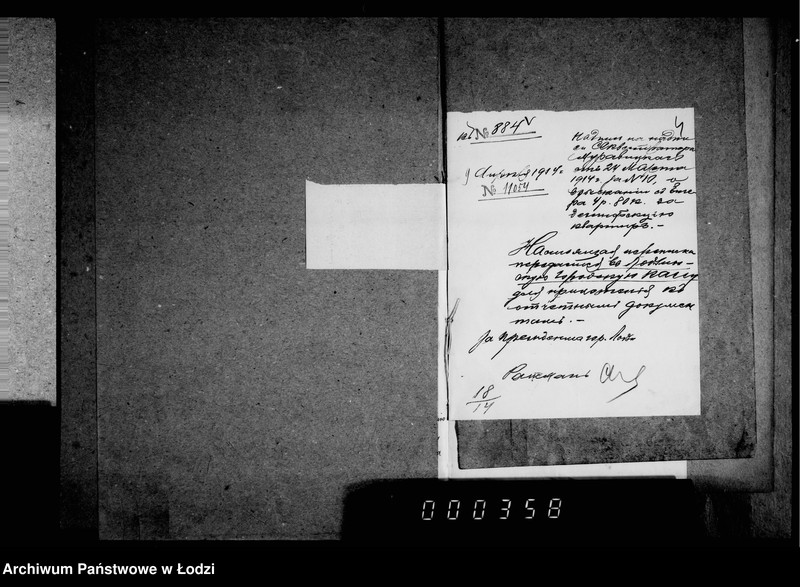 къ № 884
4
9 Апреля 1914 г.
№ 11054
Надпись на надпи-
си Секвестратора
Муравицкаго
отъ 24 Марта
1914 г. за № 10, о
взысканіи съ
ра 4 р. 80 к. за
дезинфекцію
квартиръ.-
Настоящая переписка
передается въ Лодзин-
скую городскую кассу
для приложенія къ
отчетнымъ докумен-
тамъ.-
За Президента гор. Лодзи
Ратманъ
18
14
000358
Archiwum Państwowe w Łodzi